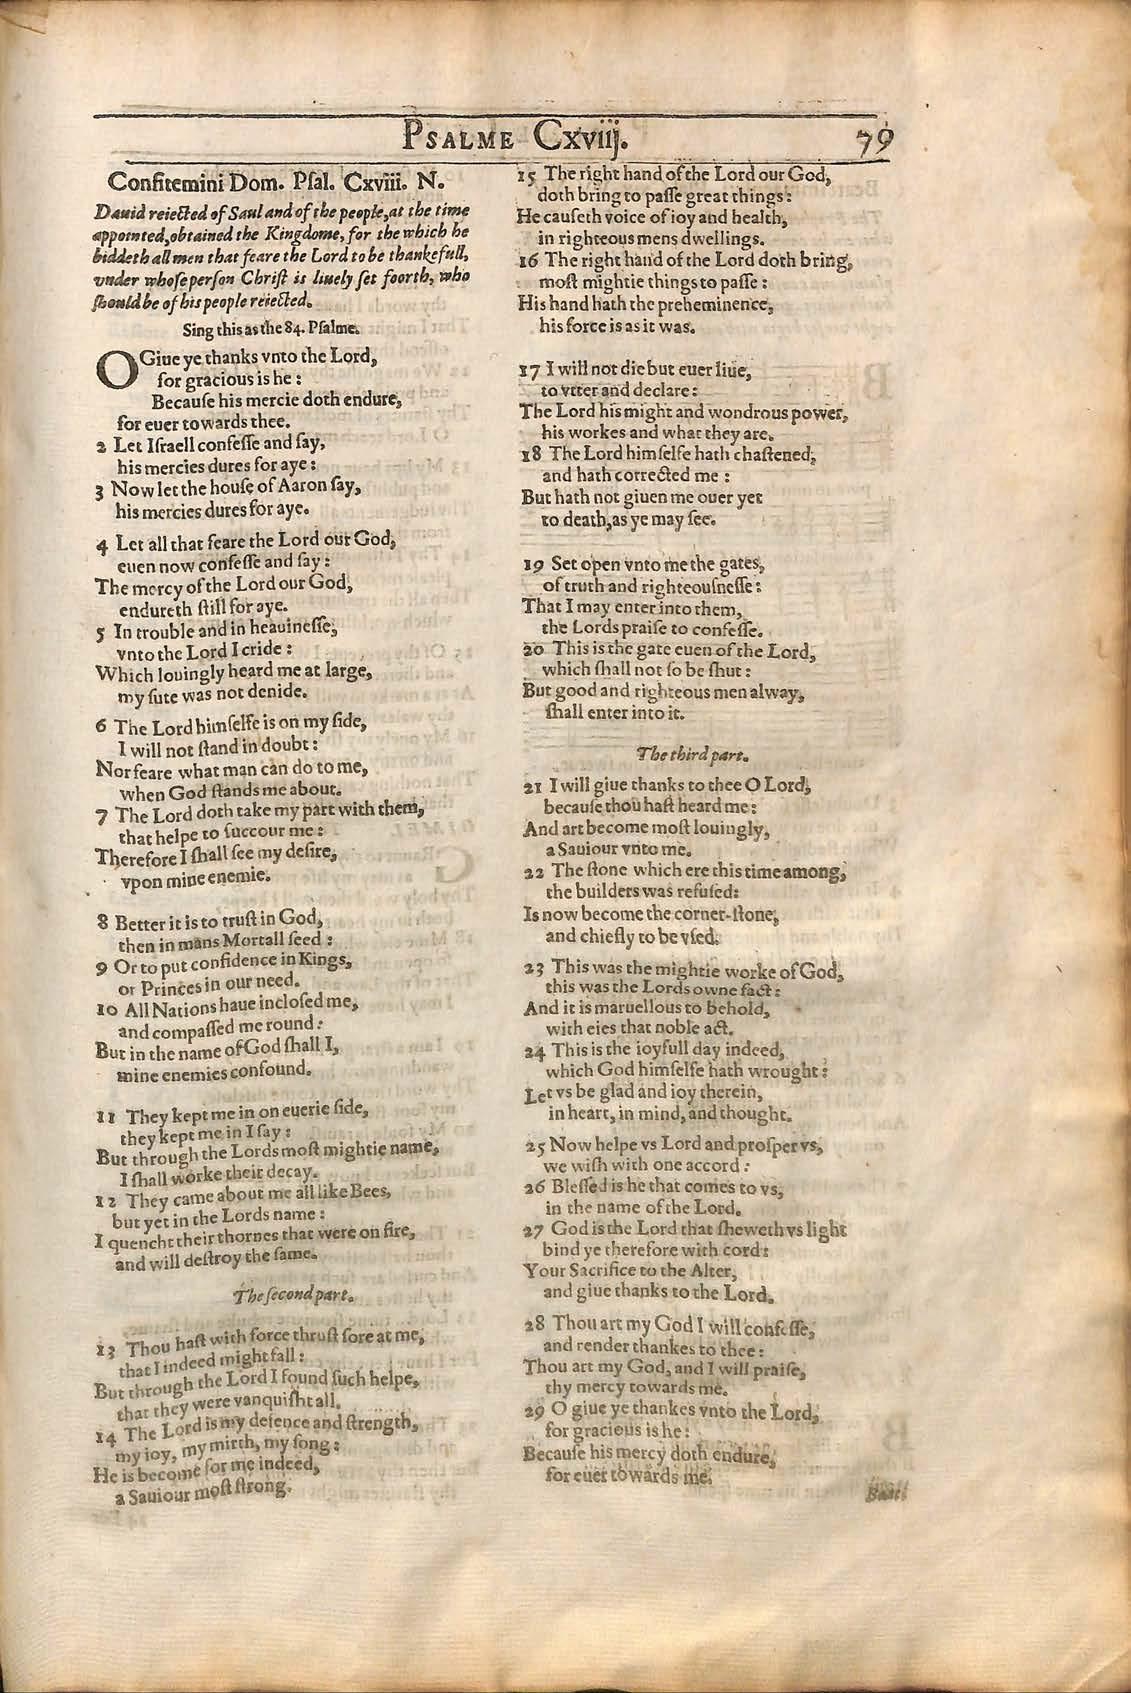 PSALME Cxviij. 79
Confitemini Dom. Psal. Cxviii. N.
Dauid reiected of Saul and of the people, at the time
appointed, obtained the Kingdome, for the which he
biddeth all men that feare the Lord to be thankefull,
vnder whose person Christ is liuely set foorth, who
should be of his people reiected.
Sing this as the 84. Psalme.
O Giue ye thanks vnto the Lord,
for gracious is he:
Because his mercie doth endure,
for euer towards thee.
2 Let Israell confesse and say,
his mercies dures for aye:
3 Now let the house of Aaron say,
his mercies dures for aye.
4 Let all that feare the Lord our God,
euen now confesse and say:
The mercy of the Lord our God,
endureth still for aye.
5 In trouble and in heauinesse,
vnto the Lord I cride:
Which louingly heard me at large,
my sute was not denide.
6 The Lord himselfe is on my side,
I will not stand in doubt:
Nor feare what man can do to me,
when God stands me about.
7 The Lord doth take my part with them,
that helpe to succour me:
Therefore I shall see my desire,
vpon mine enemie.
8 Better it is to trust in God,
then in mans Mortall seed:
9 Or to put confidence in Kings,
or Princes in our need.
10 All Nations haue inclosed me,
and compassed me round:
But in the name of God shall I,
mine enemies confound.
11 They kept me in on euerie side,
they kept me in I say:
But through the Lords most mightie name,
I shall worke their decay.
12 They came about me all like Bees,
but yet in the Lords name:
I quencht their thornes that were on fire,
and will destroy the same.
The second part.
13 Thou hast with force thrust sore at me,
that I indeed might fall:
But through the Lord I found such helpe,
that they were vanquisht all.
14 The Lord is my defence and strength,
my ioy, my mirth, my song:
He is become for me indeed,
a Sauiour most strong.
15 The right hand of the Lord our God,
doth bring to passe great things:
He causeth voice of ioy and health,
in righteous mens dwellings.
16 The right hand of the Lord doth bring,
most mightie things to passe:
His hand hath the preheminence,
his force is as it was.
17 I will not die but euer liue,
to vtter and declare:
The Lord his might and wondrous power,
his workes and what they are.
18 The Lord himselfe hath chastened,
and hath corrected me:
But hath not giuen me ouer yet
to death, as ye may see.
19 Set open vnto me the gates,
of truth and righteousnesse:
That I may enter into them,
the Lords praise to confesse.
20 This is the gate euen of the Lord,
which shall not so be shut:
But good and righteous men alway,
shall enter into it.
The third part.
21 I will giue thanks to thee O Lord,
because thou hast heard me:
And art become most louingly,
a Sauiour vnto me.
22 The stone which ere this time among,
the builders was refused:
Is now become the corner-stone,
and chiefly to be vsed.
23 This was the mightie worke of God,
this was the Lords owne fact:
And it is maruellous to behold,
with eies that noble act.
24 This is the ioyfull day indeed,
which God himselfe hath wrought:
Let vs be glad and ioy therein,
in heart, in mind, and thought.
25 Now helpe vs Lord and prosper vs,
we wish with one accord:
26 Blessed is he that comes to vs,
in the name of the Lord.
27 God is the Lord that sheweth vs light
bind ye therefore with cord:
Your Sacrifice to the Alter,
and giue thanks to the Lord.
28 Thou art my God I will confesse,
and render thankes to thee:
Thou art my God, and I will praise,
thy mercy towards me.
29 O giue ye thankes vnto the Lord,
for gracious is he:
Because his mercy doth endure,
for euer towards me.